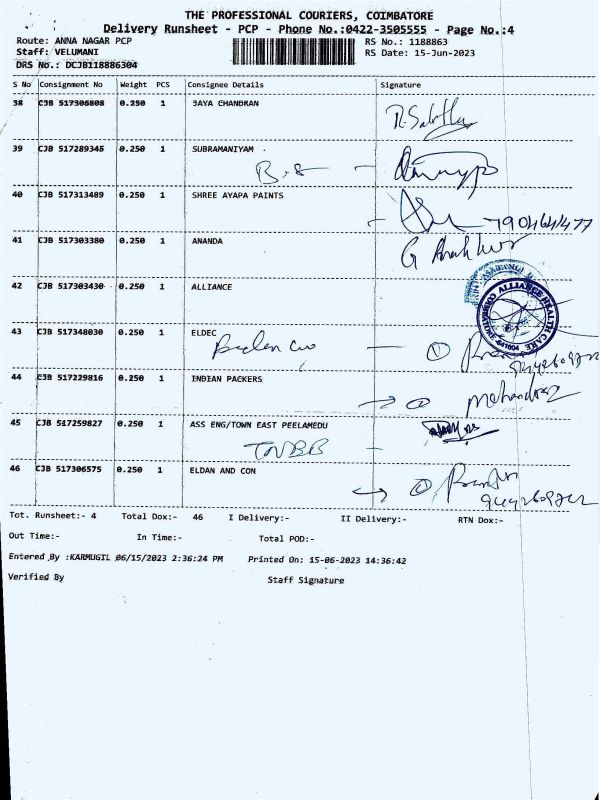 THE PROFESSIONAL COURIERS, COIMBATORE
Delivery Runsheet - PCP - Phone No.:0422-3505555 - Page No.:4
Route: ANNA NAGAR PCP RS No.: 1188863
Staff: VELUMANI RS Date: 15-Jun-2023
DRS No.: DCJB118886304
S No Consignment No Weight PCS Consignee Details Signature
38 CJB 517306808 0.250 1 JAYA CHANDRAN
39 CJB 517289345 0.250 1 SUBRAMANIYAM
B.S
40 CJB 517313489 0.250 1 SHREE AYAPA PAINTS
7904641477
41 CJB 517303380 0.250 1 ANANDA
G
42 CJB 517303430 0.250 1 ALLIANCE
ALLIANCE HEALTH CARE
43 CJB 517348030 0.250 1 ELDEC
1
44 CJB 517229816 0.250 1 INDIAN PACKERS
45 CJB 517259827 0.250 1 ASS ENG/TOWN EAST PEELAMEDU
46 CJB 517306575 0.250 1 ELDAN AND CON
Tot. Runsheet:- 4 Total Dox:- 46 I Delivery:- II Delivery:- RTN Dox:-
Out Time:- In Time:- Total POD:-
Entered By :KARMUGIL 06/15/2023 2:36:24 PM Printed On: 15-06-2023 14:36:42
Verified By Staff Signature